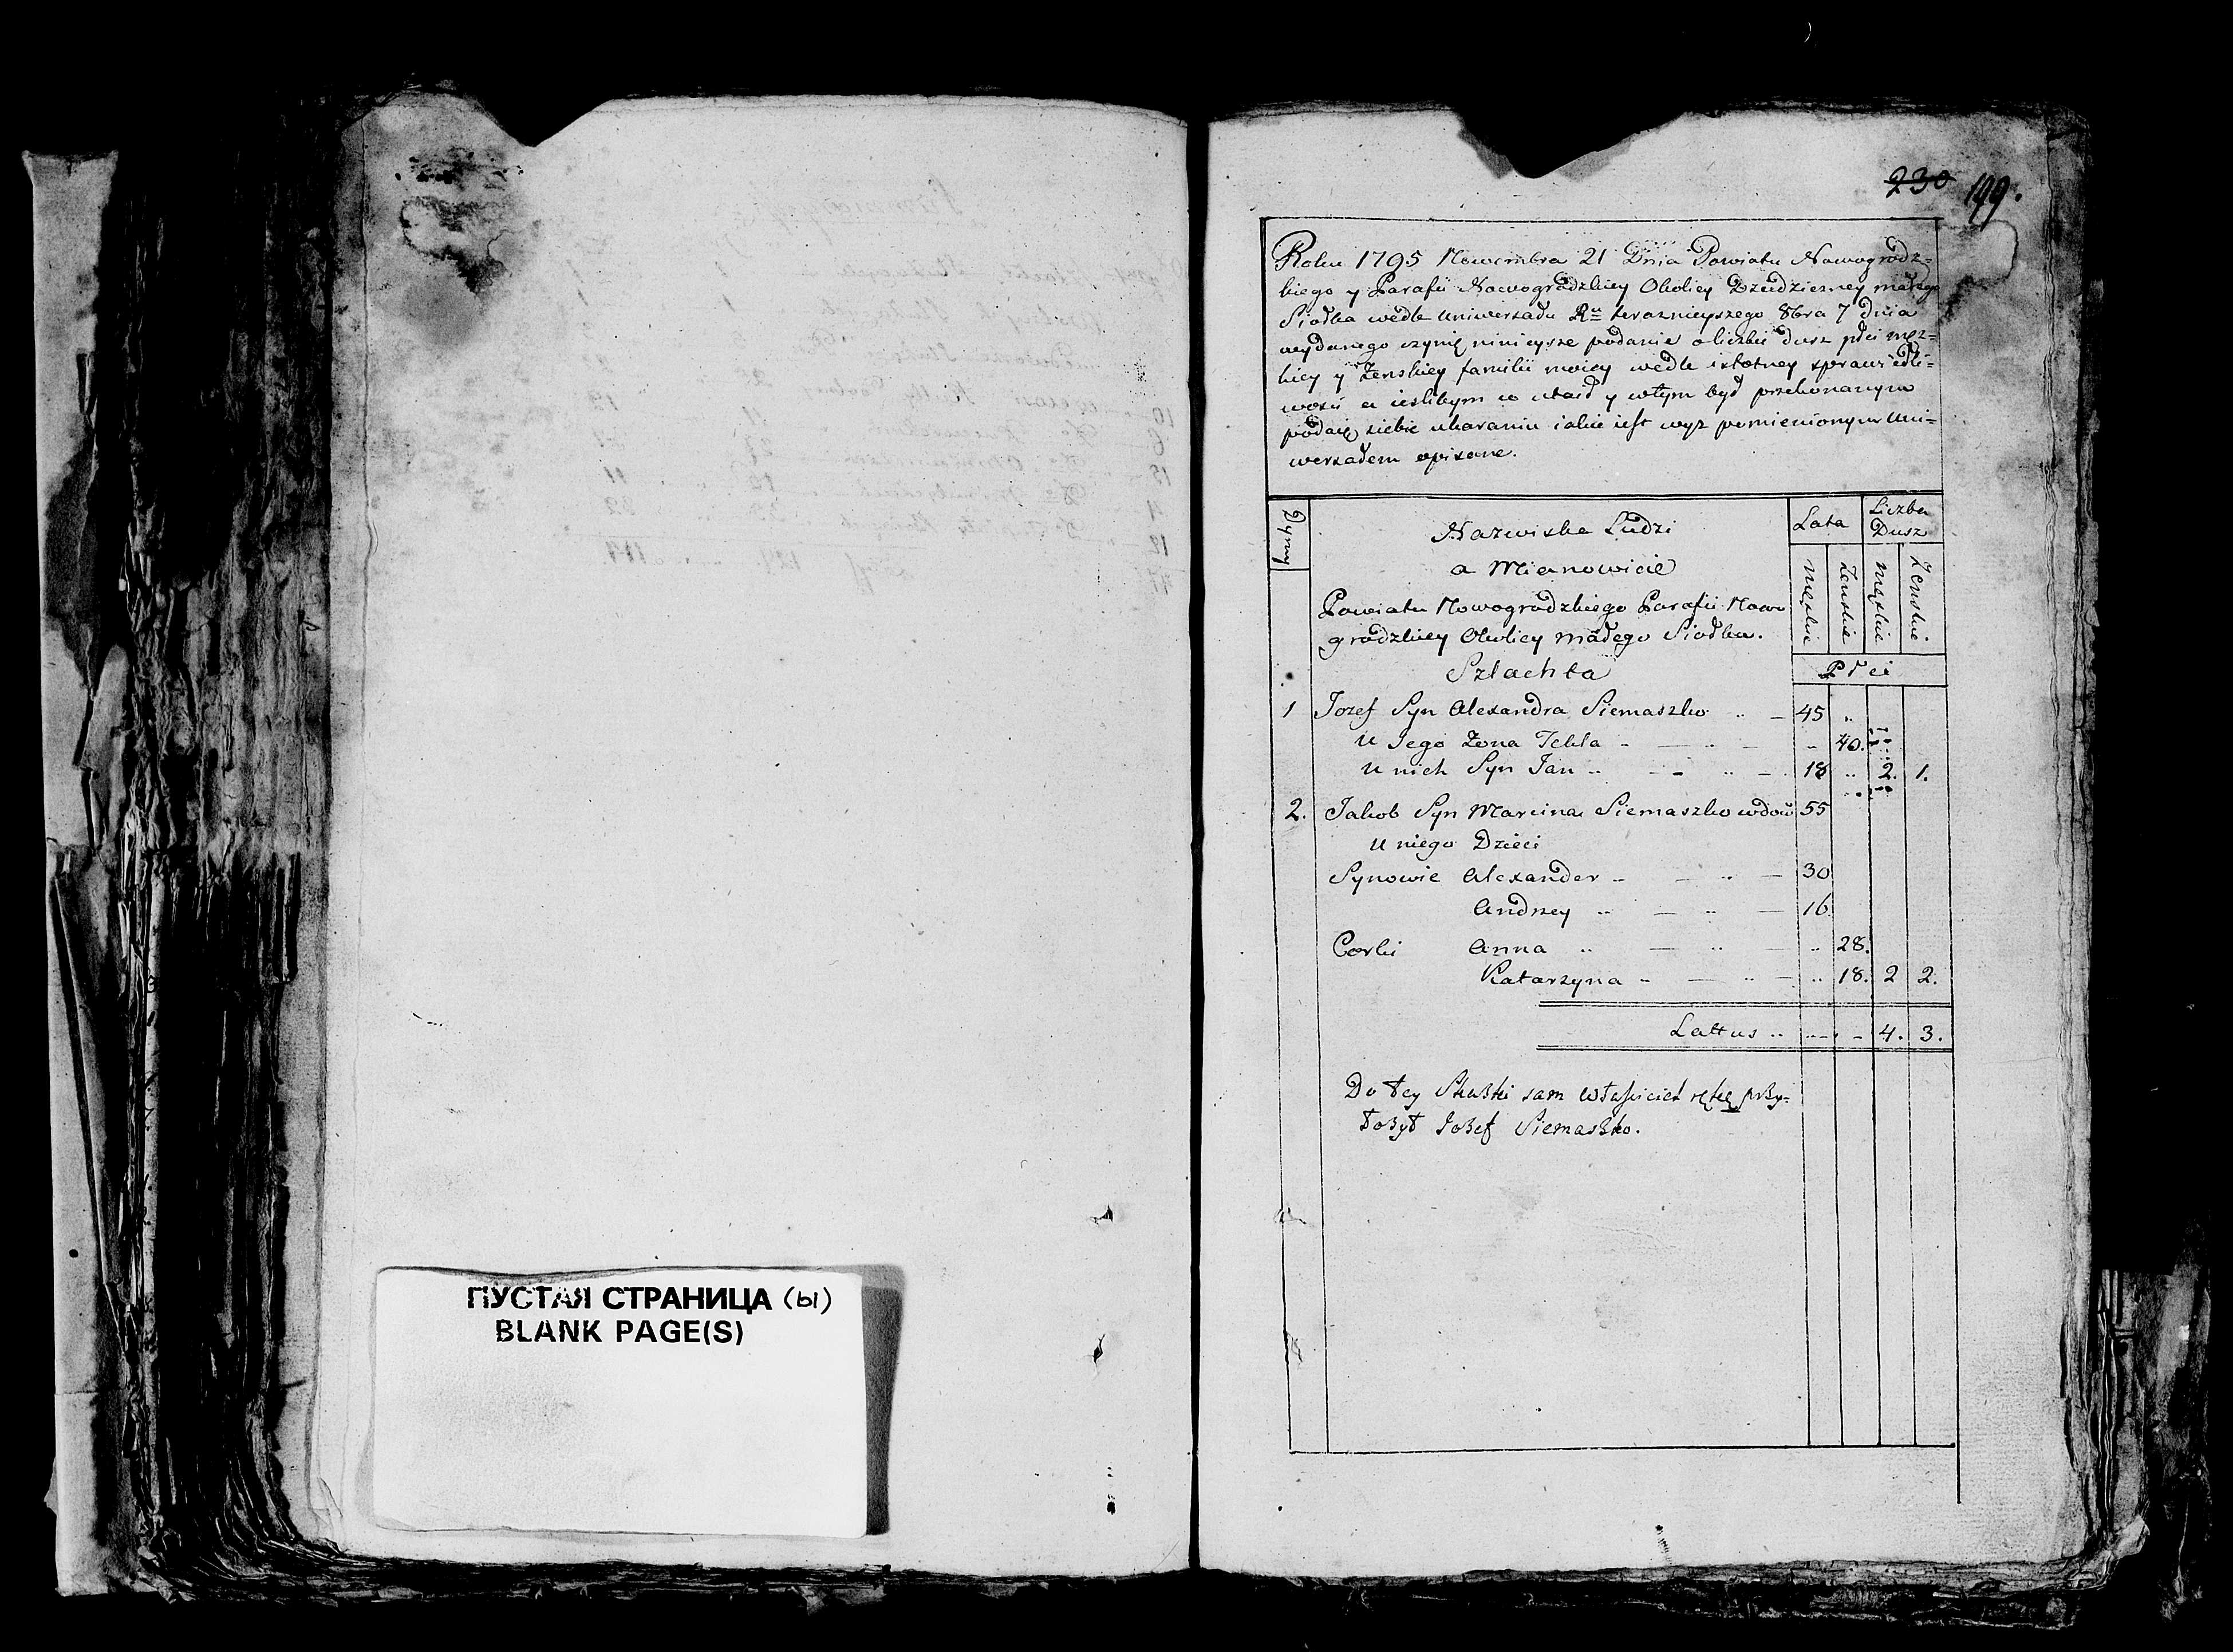 ПУСТАЯ СТРАНИЦА (ы)
BLANK PAGE(S)
230 199.
Roku 1795 Nowembra 21 Dnia Powiatu Nowogrodz=
kiego y Parafii Nowogrodzkiey Okolicy małego
Siodka wedle uniwersału Ru terazniejszego 8bra 7 dnia
wydanego czynię ninieysze podanie o liczbie dusz płci męz=
kiey y Zenskiey familii moiey wedle istotney sprawiedli=
wosci a iesli bym co utaił y wtym był przekonanym
podaię siebie ukaraniu iakie iest wyz pomienionym Uni=
wersałem opisane.
Dymy
Nazwiska Ludzi
a Mianowicie
Lata
Liczba
Dusz
męskie Zenskie męskie Zenskie
Powiatu Nowogrodzkiego Parafii Nowo
grodzkiey Okolicy małego Siodka.
Szlachta
Płci
1 Jozef Syn Alexandra Siemaszko .. — 45 ..
U Jego Zona Tekla .. — .. — .. 40.
U nich Syn Jan .. — .. — 18 .. 2. 1.
2. Jakob Syn Marcina Siemaszko wdow 55
U niego Dzieci
Synowie Alexander .. — .. — 30
Andrzey .. — .. — 16
Corki Anna .. — .. — .. 28.
Katarzyna .. — .. — .. 18. 2 2.
Lattus .. 4. 3.
Do tey Skaski sam własciciel rękę przy=
łozył Jozef Siemaszko.